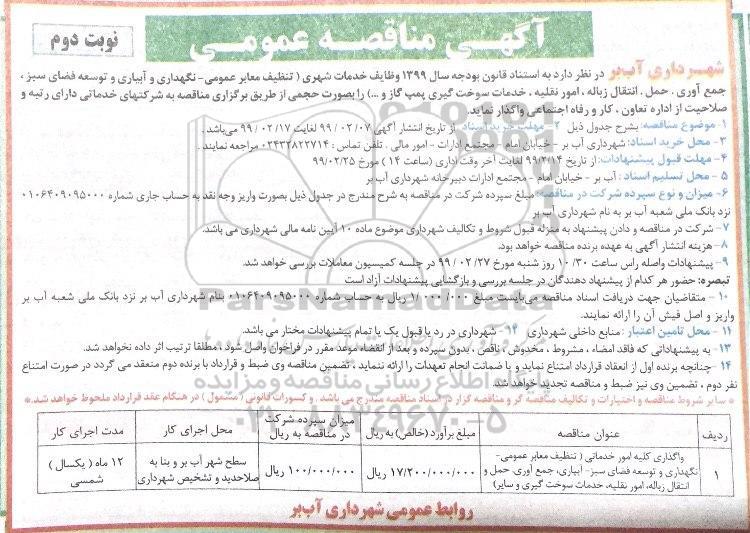 آگهی مناقصه عمومی
نوبت دوم
شهرداری آب‌بر در نظر دارد به استناد قانون بودجه سال ۱۳۹۹ وظایف خدمات شهری ( تنظیف معابر عمومی- نگهداری و آبیاری و توسعه فضای سبز ،
جمع آوری . حمل . انتقال زباله ، امور نقلیه ، خدمات سوخت گیری پمپ گاز و ...) را بصورت حجمی از طریق برگزاری مناقصه به شرکتهای خدماتی دارای رتبه و
صلاحیت از اداره تعاون ، کار و رفاه اجتماعی واگذار نماید.
۱ -موضوع مناقصه: بشرح جدول ذیل ۲- مهلت خرید اسناد از تاریخ انتشار آگهی ۹۹/۰۲/۰۷ لغایت ۹۹/۰۲/۱۷ می‌باشد.
۳ - محل خرید اسناد: شهرداری آب بر - خیابان امام - مجتمع ادارات - امور مالی . تلفن تماس : ۰۲۴۳۲۸۲۲۷۱۴ مراجعه نمایند .
۴ - مهلت قبول پیشنهادات: از تاریخ ۹۹/۲/۱۴ لغایت آخر وقت اداری (ساعت ۱۴ ) مورخ ۹۹/۰۲/۲۵
۵ - محل تسلیم اسناد : آب بر - خیابان امام - مجتمع ادارات دبیرخانه شهرداری آب بر
۶- میزان و نوع سپرده شرکت در مناقصه: مبلغ سپرده شرکت در مناقصه به شرح مندرج در جدول ذیل بصورت واریز وجه نقد به حساب جاری شماره ۰۱۰۶۴۰۹۰۹۵۰۰۰
نزد بانک ملی شعبه آب بر به نام شهرداری آب بر
۷- شرکت در مناقصه و دادن پیشنهاد به منزله قبول شروط و تکالیف شهرداری موضوع ماده ۱۰ آیین نامه مالی شهرداری می باشد.
۸- هزینه انتشار آگهی به عهده برنده مناقصه خواهد بود.
۹- پیشنهادات واصله راس ساعت ۱۰/۳۰ روز شنبه مورخ ۹۹/۰۲/۲۷ در جلسه کمیسیون معاملات بررسی خواهد شد.
تبصره: حضور هر کدام از پیشنهاد دهندگان در جلسه بررسی و بازگشایی پیشنهادات آزاد است
۱۰ - متقاضیان جهت دریافت اسناد مناقصه می‌بایست مبلغ ۱/۰۰۰/۰۰۰ ریال به حساب شماره ۰۱۰۶۴۰۹۰۹۵۰۰۰ بنام شهرداری آب بر نزد بانک ملی شعبه آب بر
واریز و اصل فیش آن را ارائه نمایند.
۱۱ - محل تامین اعتبار : منابع داخلی شهرداری ۱۲- شهرداری در رد یا قبول یک یا تمام پیشنهادات مختار می باشد.
۱۳ - به پیشنهاداتی که فاقد امضاء ، مشروط ، مخدوش ، ناقص ، بدون سپرده و بعد از انقضاء موعد مقرر در فراخوان واصل شود ، مطلقا ترتیب اثر داده نخواهد شد.
۱۴ - چنانچه برنده اول از انعقاد قرارداد امتناع نماید و یا ضمانت انجام تعهدات را ارائه ننماید ، تضمین مناقصه وی ضبط و قرارداد با برنده دوم منعقد می گردد در صورت امتناع
نفر دوم ، تضمین وی نیز ضبط و مناقصه تجدید خواهد شد.
* سایر شروط مناقصه و اختیارات و تکالیف مناقصه گر و مناقصه گزار در اسناد مناقصه مندرج می باشد . و کسورات قانونی ( مشمول ) در هنگام عقد قرارداد ملحوظ خواهد شد.*
ParsNamadData
اطلاع رسانی مناقصه و مزایده
۰۲۱-۸۸۳۴۹۶۷۰-۵
ردیف عنوان مناقصه مبلغ برآورد (خالص) به ریال میزان سپرده شرکت در مناقصه به ریال محل اجرای کار مدت اجرای کار
۱ واگذاری کلیه امور خدماتی ( تنظیف معابر عمومی- نگهداری و توسعه فضای سبز- آبیاری، جمع آوری، حمل و انتقال زباله، امور نقلیه، خدمات سوخت گیری و سایر) ۱۷/۲۰۰/۰۰۰/۰۰۰ ریال ۱۰۰/۰۰۰/۰۰۰ ریال سطح شهر آب بر و بنا به صلاحدید و تشخیص شهرداری ۱۲ ماه ( یکسال ) شمسی
روابط عمومی شهرداری آب‌بر